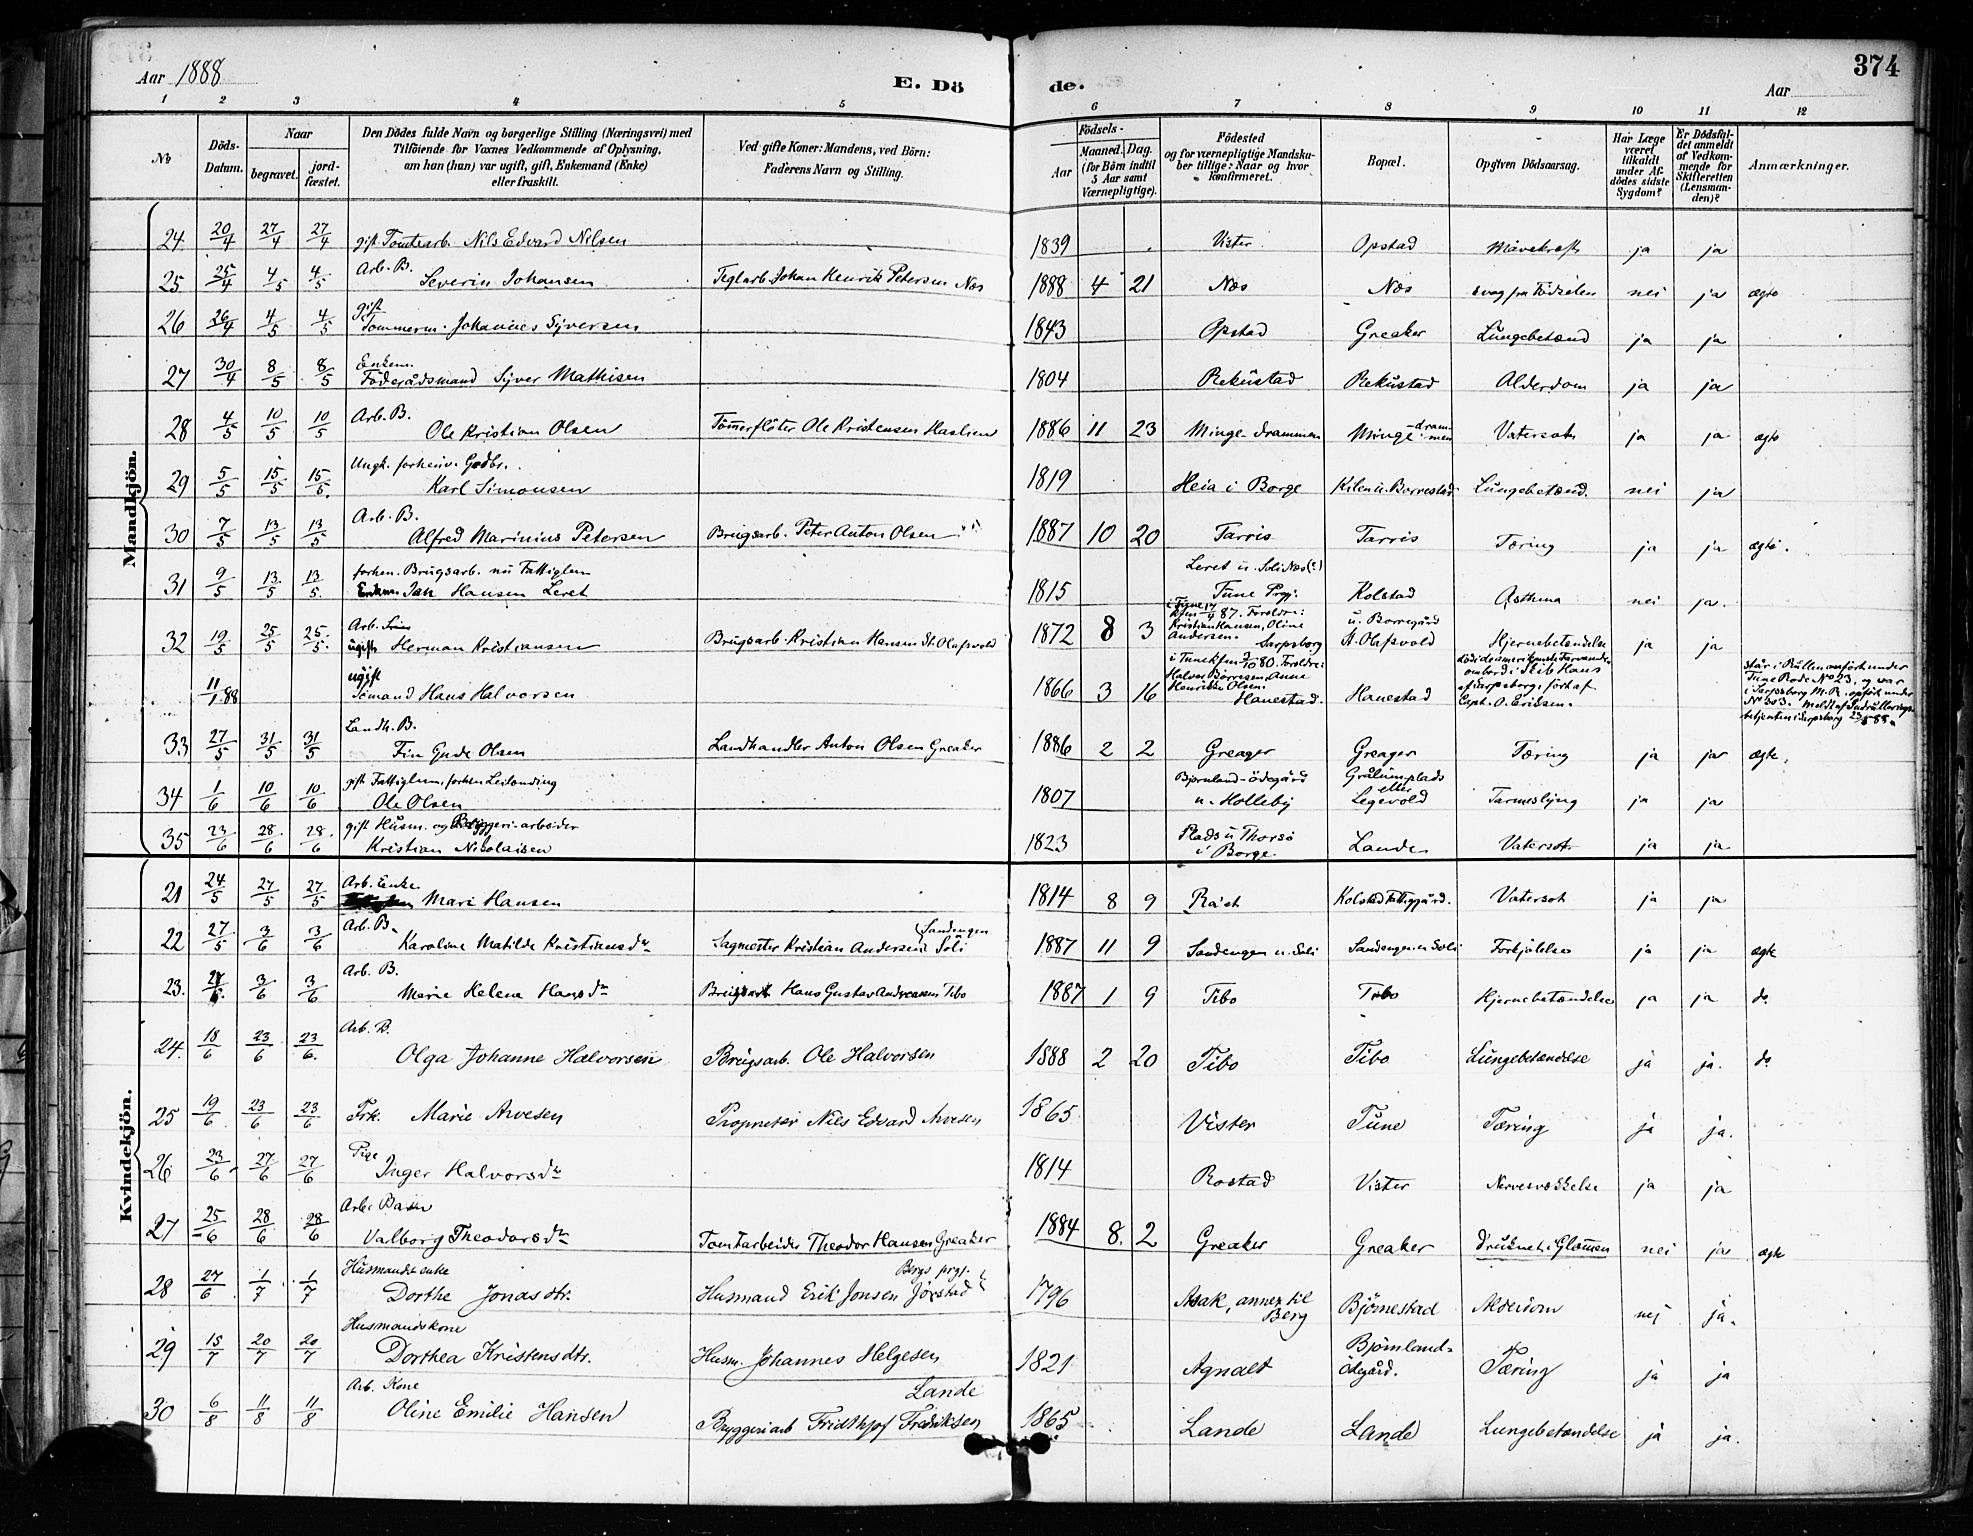 374
Aar 1888
E. Dö de.
Aar
1 2 3 4 5 6 7 8 9 10 11 12
No
Döds-Datum.
Naar
begravet.
jordfæstet.
Den Dödes fulde Navn og borgerlige Stilling (Næringsvei) med
Tilföiende for Voxnes Vedkommende af Oplysning,
om han (hun) var ugift, gift, Enkemand (Enke)
eller fraskilt.
Ved gifte Koner: Mandens, ved Börn:
Faderens Navn og Stilling.
Födsels-
Aar
Maaned. Dag.
(for Börn indtil
5 Aar samt
Værnepligtige).
Födested
og for værnepligtige Mandskaber tillige: Naar og hvor
konfirmeret.
Bopæl.
Opgiven Dödsaarsag.
Har Læge
været
tilkaldt
under Afdödes sidste
Sygdom?
Er Dödsfaldet anmeldt
af Vedkommende for
Skifteretten
(Lensmanden)?
Anmærkninger.
Mandkjön.
24 20/4 27/4 27/4 gift Tomtearb. Nils Edvard Nilsen 1839 Vister Opstad Mavekræft ja ja
25 25/4 4/5 4/5 Arb. B. Severin Johansen Teglarb. Johan Henrik Petersen Næs 1888 4 21 Næs Næs svag fra Födselen nei ja ægte
26 26/4 4/5 4/5 gift Tömmerm. Johannes Syversen 1843 Opstad Greaker Lungebetænd ja ja
27 30/4 8/5 8/5 Enkem. Föderådsmand Syver Mathisen 1804 Rekustad Rekustad Alderdom ja ja
28 4/5 10/5 10/5 Arb. B. Ole Kristian Olsen Tömerflöter Ole Kristensen Haslien 1886 11 23 Minge-drammen Minge-drammen Vatersot ja ja ægte
29 5/5 15/5 15/5. Ungk. forhenv. Gdbr. Karl Simonsen 1819 Heia i Borge Kilen u. Borrestad Lungebetænd. nei ja
30 7/5 13/5 13/5 Arb. B. Alfred Marinius Petersen Brugsarb. Peter Anton Olsen 1887 10 20 Tarris Tarris Tæring ja ja ægte.
31 9/5 13/5 13/5. forhen. Brugsarb. nu Fattiglem Enkem. Jan Hansen Leret 1815 Leret u. Soli Næs (?) Tune Prgj. Kolstad Asthma nei ja.
32 19/5 25/5 25/5. Arb. ugift Herman Kristiansen Brugsarb. Kristian Hansen St. Olafsvold 1872 8 3 i Tune kfm 17/4 87. Foreldre: Kristian Hansen, Oline Andersen. Sarpsborg u. Borregård St. Olafsvold Hjernebetændelse ja ja
11/1.88 ugift Sömand Hans Halvorsen 1866 3 16 i Tune kfm 80. Foreldre: Halvor Börresen, Anne Henrikke Olsen. Hanestad. Hanestad Död i de amerikanske Farvande ombord i Skib Hans af Sarpsborg, fört af Capt. O. Eriksen.
står i Rullen anfört under Tune Rode No 23, og var i Sarpsborg M. R. opfört under No 303. Meldt af Indrulleringsbetjenten i Sarpsborg 23/5 88.
33 27/5 31/5 31/5 Landh. B. Fin Gude Olsen Landhandler Anton Olsen Greaker 1886 2 2 Greager Greager Tæring ja ja ægte.
34 1/6 10/6 10/6 gift Fattiglem, forhen Leilending Ole Olsen 1807 Bjørnland-ödegård u. Holleby Grålumplads etter Legevold Tarmeslyng ja ja
35 23/6 28/6 28/6 gift Husm. og Bryggeri-arbeider Kristian Nikolaisen 1823 Plads u Thorsö i Borge Lande Vatersot ja ja
Kvindekjön.
21 24/5 27/5 27/5 Arb. Enke Mari Hansen 1814 8 9 Råst Kolstad Fattiggård. Vatersot ja ja
22 27/5 3/6 3/6 Arb. B. Karoline Matilde Kristiansdr Sagmester Kristian Andersen Sandengen Soli 1887 11 9 Sandengen u. Soli Sandengen u Soli Forkjölelse ja ja ægte
23. 3/6 3/6 Arb. B. Marie Helene Hansdr Brugsarb Hans Gustav Andreasen Tibo 1887 1 9 Tibo Tibo Hjernebetændelse ja ja do.
24. 18/6 23/6 23/6. Arb. B. Olga Johanne Halvorsen Brugsarb. Ole Halvorsen 1888 2 20 Tibo Tibo Lungebetændelse ja ja. do
25 19/6 23/6 23/6 Frk. Marie Arvesen Proprietær Nils Edvard Arvesen 1865 Vister Tune Tæring ja ja.
26 23/6 27/6 27/6 Pige Inger Halvorsdr 1814 Rostad Vister Nervesvækkelse ja ja
27 25/6 28/6 28/6 Arb. Barn Valborg Theodorsdr Tomtarbeider Theodor Hansen Greaker 1884 8. 2 Greaker Greaker druknet i Glommen nei ja ægte
28 27/6 1/7 1/7 Husmandsenke Dorthe Jonasdtr. Husmand Erik Jonsen Jörstad Bergs prgj. 1796 Asak, annex til Berg Bjørnestad Alderdom nej ja.
29 15/7 20/7 20/7 Husmandskone Dorthea Kristensdtr. Husm. Johannes Helgesen 1821 Agnalt Bjørnland-ödegård. Tæring ja ja
30 6/8 11/8 11/8 Arb. Kone Oline Emilie Hansen Bryggeriarb Fridthjof Fredriksen Lande 1865 Lande Lande Lungebetændelse ja ja.